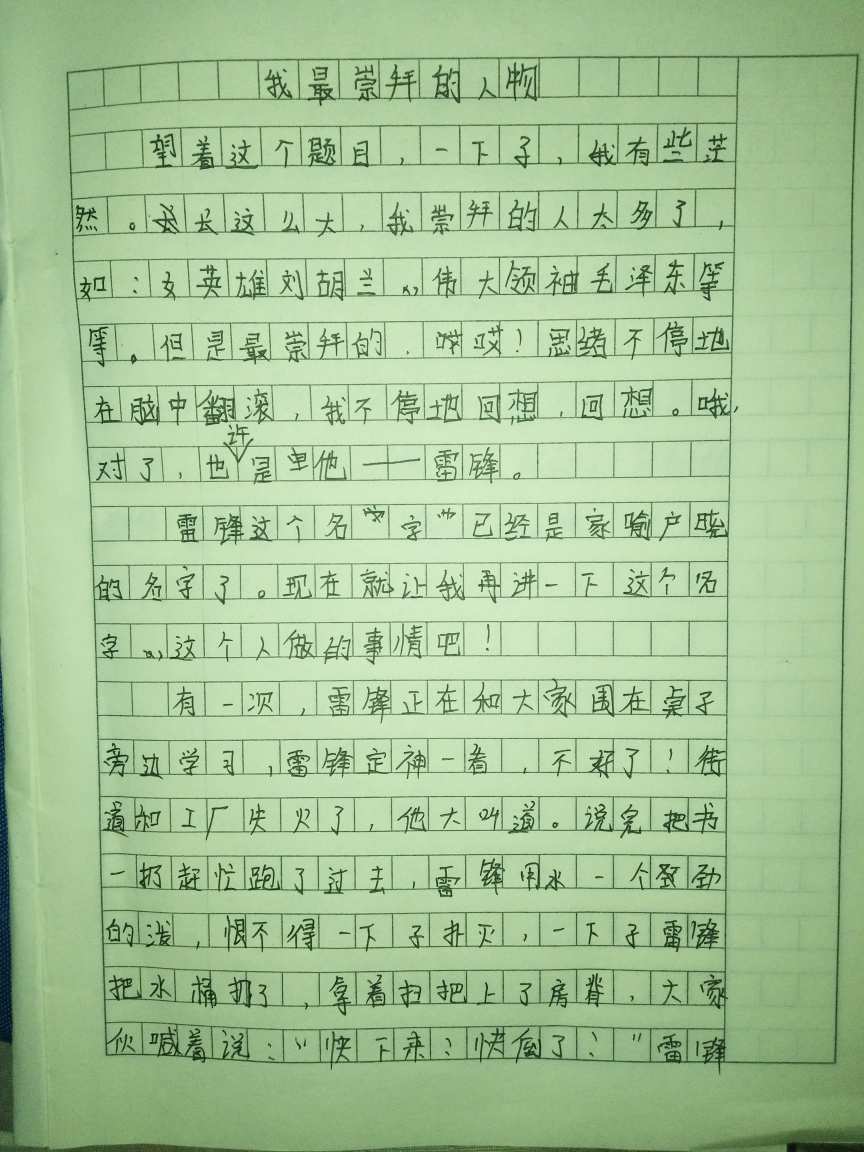 我最崇拜的人物
望着这个题目,一下子,我有些茫
然。长这么大,我崇拜的人太多了,
如:女英雄刘胡兰、伟大领袖毛泽东等
等。但是最崇拜的,哎哎!思绪不停地
在脑中翻滚,我不停地回想,回想。哦,
许
对了,也是他——雷锋。
雷锋这个名字”已经是家喻户晓
的名字了。现在就让我再讲一下这个名
字、这个人做的事情吧!
有一次,雷锋正在和大家围在桌子
旁边学习,雷锋定神一看,不好了!街
道和工厂失火了,他大叫道。说完把书
一扔赶忙跑了过去,雷锋用水一个致劲
的泼,恨不得一下子扑灭,一下子雷锋
把水桶扔了,拿着扫把上了房脊,大家
伙喊着说:“快下来!快倒了!”雷锋